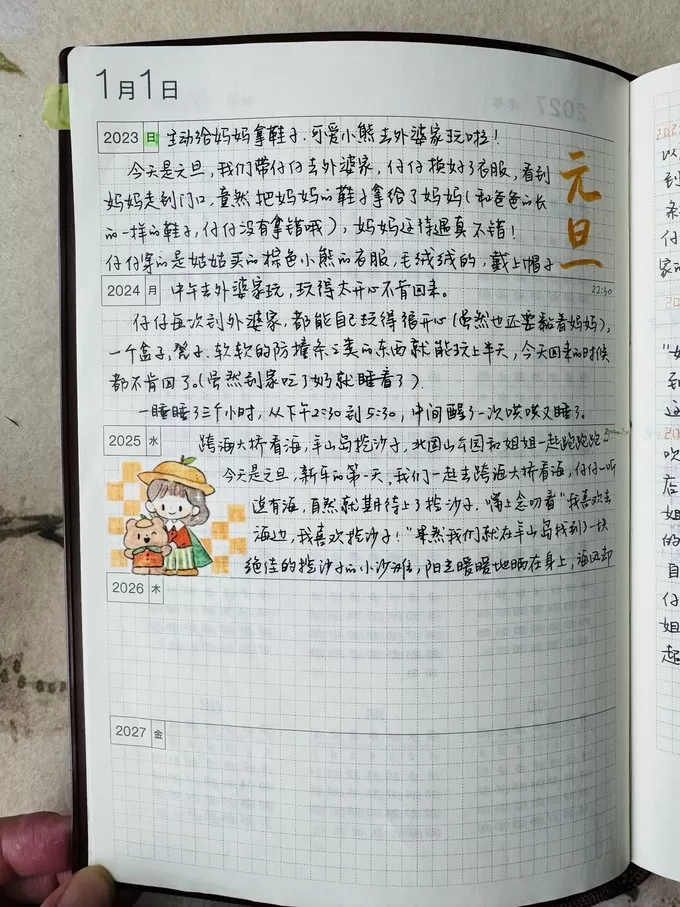 1月1日
2023 日 生动给妈妈拿鞋子.可爱小熊去外婆家玩啦!
元旦
今天是元旦,我们带仔仔去外婆家,仔仔换好了衣服,看到
妈妈走到门口,竟然把妈妈的鞋子拿给了妈妈(和爸爸的长
的一样的鞋子,仔仔没有拿错哦),妈妈这待遇真不错!
仔仔穿的是姑姑买的棕色小熊的衣服,毛绒绒的,戴上帽子
2024 月 中午去外婆家玩,玩得太开心不肯回来。 22:30
仔仔每次到外婆家,都能自己玩得很开心(虽然也还要黏着妈妈),
一个盒子,凳子.软软的防撞条之类的东西就能玩上半天,今天回来的时候
都不肯回了。(虽然到家吃了奶就睡着了)
一睡睡了三个小时,从下午2:30到5:30,中间醒了一次哄哄又睡了。
2025 水 跨海大桥看海,羊山岛挖沙子,北固山公园和姐姐一起跑跑跑
今天是元旦,新年的第一天,我们一起去跨海大桥看海,仔仔一听
说有海,自然就期待上了挖沙子,嘴上念叨着"我喜欢去
海边,我喜欢挖沙子!"果然我们就在羊山岛找到了一块
绝佳的挖沙子的小沙滩,阳光暖暖地晒在身上,海风却
2026 木
2027 金